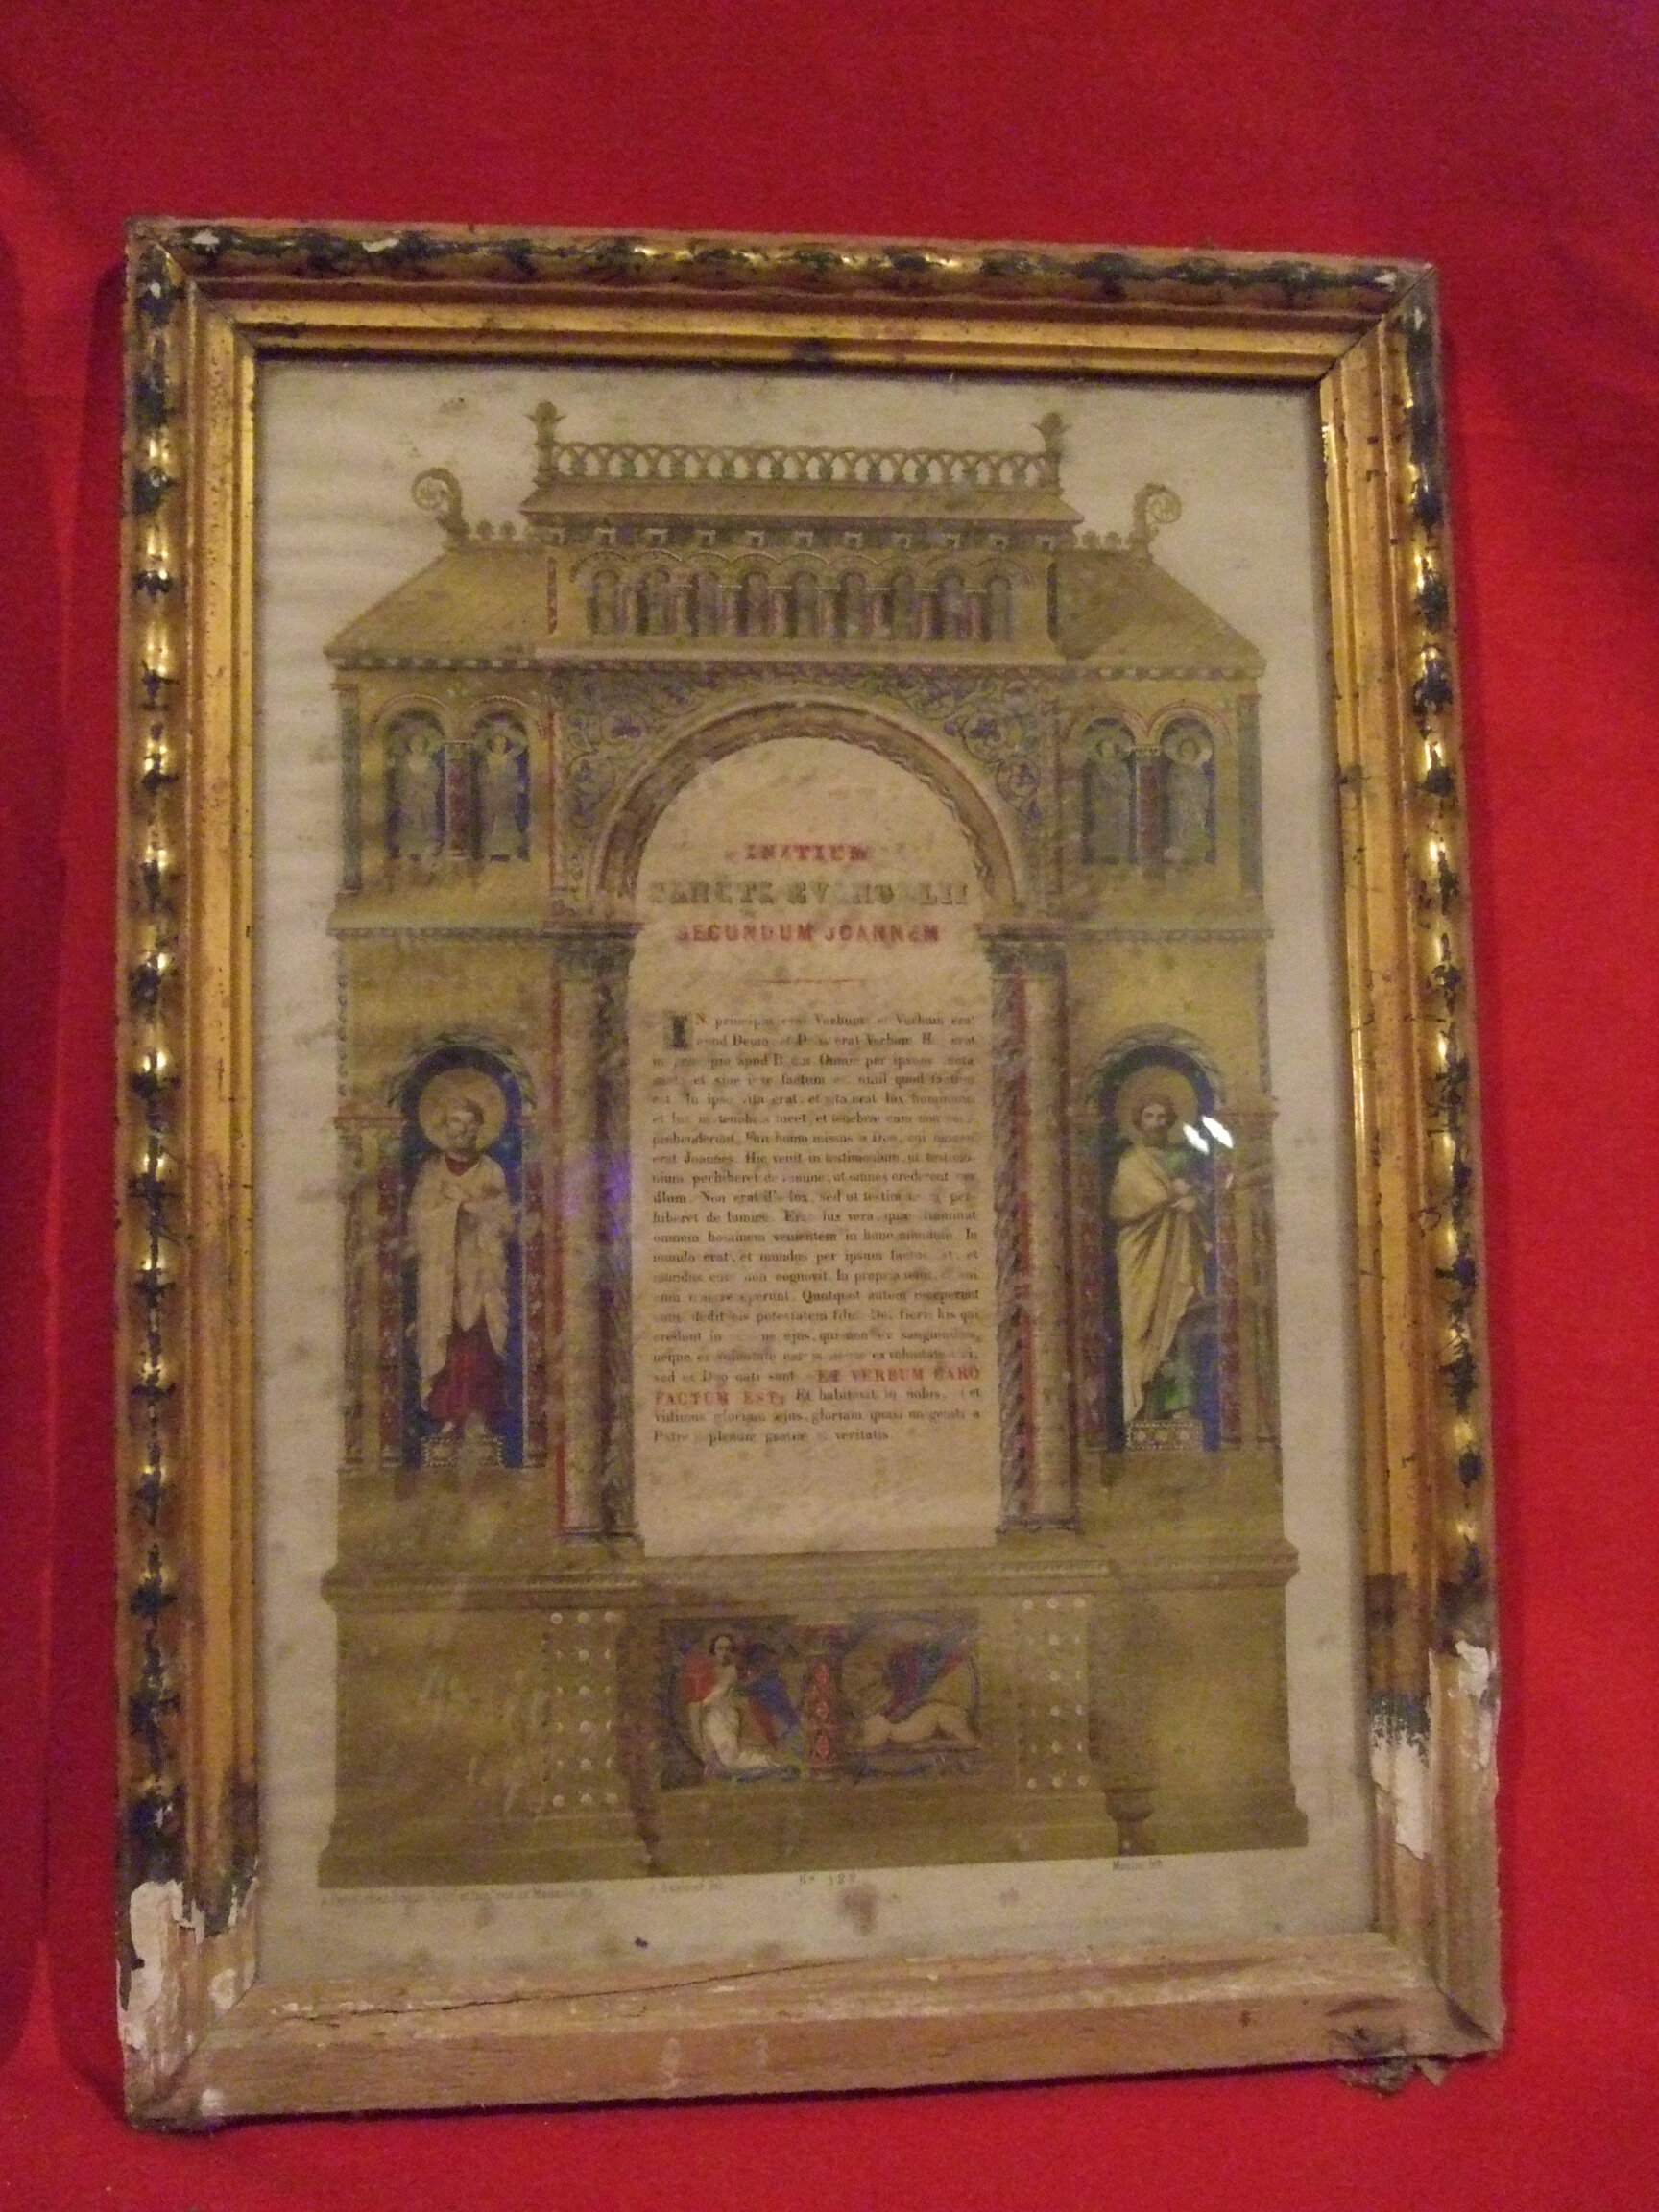 INITIUM
SANCTI EVANGELII
SECUNDUM JOANNEM
IN principio erat Verbum et Verbum erat
apud Deum, et Deus erat Verbum. Hoc erat
in principio apud Deum. Omnia per ipsum facta
sunt, et sine ipso factum est nihil quod factum
est. In ipso vita erat, et vita erat lux hominum,
et lux in tenebris lucet, et tenebræ eam non com-
prehenderunt. Fuit homo missus a Deo, cui nomen
erat Joannes. Hic venit in testimonium, ut testimo-
nium perhiberet de lumine, ut omnes crederent per
illum. Non erat ille lux, sed ut testimonium per-
hiberet de lumine. Erat lux vera, quæ illuminat
omnem hominem venientem in hunc mundum. In
mundo erat, et mundus per ipsum factus est, et
mundus eum non cognovit. In propria venit, et sui
eum non receperunt. Quotquot autem receperunt
eum, dedit eis potestatem filios Dei fieri, his qui
credunt in nomine ejus, qui non ex sanguinibus,
neque ex voluntate carnis, neque ex voluntate viri,
sed ex Deo nati sunt. ET VERBUM CARO
FACTUM EST, Et habitavit in nobis, et
vidimus gloriam ejus, gloriam quasi unigeniti a
Patre plenum gratiæ et veritatis
Nº 127